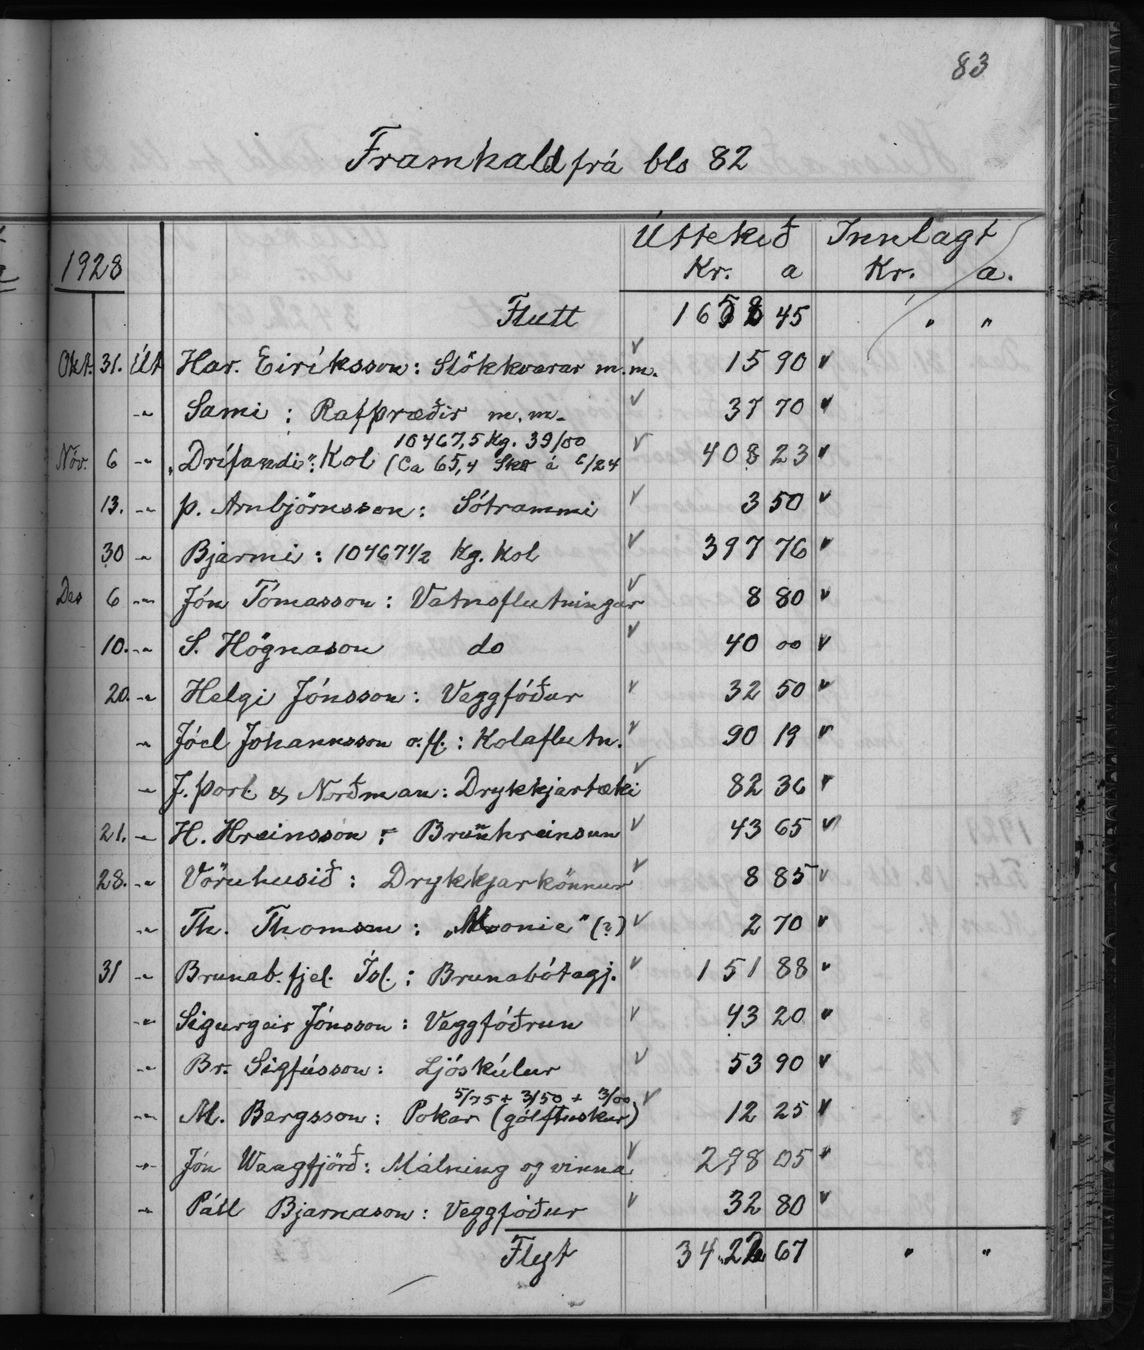 83
Framhald frá bls 82
Úttekið Innlagt
1928 Kr. a Kr. a.
Flutt 1658 45 " "
Okt. 31. Út Har. Eiríksson: Slökkvarar m.m. 15 90
-"- Sami: Rafþræðir m.m. 37 70
10467,5 kg. 39/00
Nóv. 6 -"- „Drífandi": Kol (Ca 65,4 Skp á 6/24 408 23
13. -"- Þ. Arnbjörnsson: Sótrammi 3 50
30 -"- Bjarmi: 10467 1/2 kg. kol 397 76
Des 6 -"- Jón Tómasson: Vatnsflutningar 8 80
10. -"- S. Högnason do 40 00
20. -"- Helgi Jónsson: Veggfóður 32 50
-"- Jóel Johannsson o.fl.: Kolaflutn. 90 19
-"- J. Þorl & Norðman: Drykkjartæki 82 36
21. -"- H. Hreinsson: Brunnhreinsun 43 65
28. -"- Vöruhusið: Drykkjarkönnur 8 85
-"- Th. Thomsen: (?) 2 70
31 -"- Brunab. fjel. Ísl.: Brunabótagj. 151 88
-"- Sigurgeir Jónsson: Veggfóðrun 43 20
-"- Br. Sigfússon: Ljóskúlur 53 90
5/75 + 3/50 + 3/00
-"- M. Bergsson: Pokar (gólftuskur) 12 25
-"- Jón Waagfjörð: Málning og vinna 298 05
-"- Páll Bjarnason: Veggfóður 32 80
Flyt 3422 67 " "